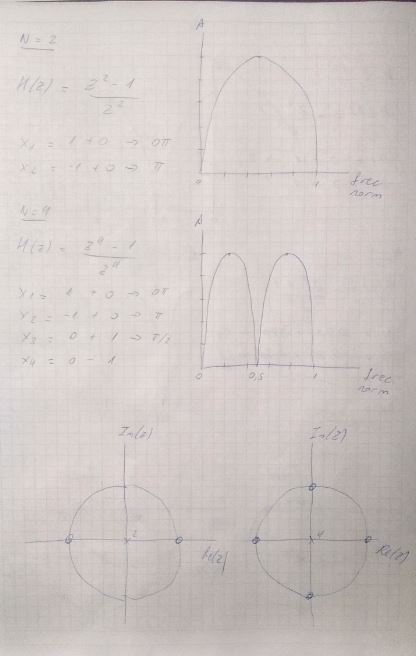 N = 2
A
H(z) = z² - 1
z²
x₁ = 1 + 0 → 0π
x₂ = -1 + 0 → π
0
1
frec
norm
N = 4
A
H(z) = z⁴ - 1
z⁴
x₁ = 1 + 0 → 0π
x₂ = -1 + 0 → π
x₃ = 0 + 1 → π/2
x₄ = 0 - 1
0
0,5
1
frec
norm
Im(z)
Im(z)
2
Re(z)
4
Re(z)